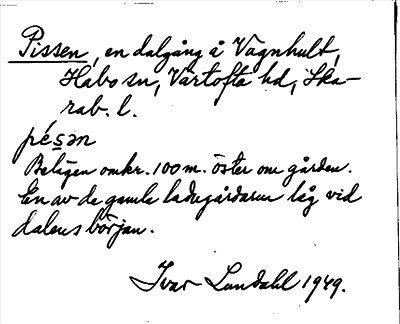 Pissen, en dalgång å Vagnhult,
Habo sn, Vartofta hd, Ska-
rab. l.
pésən
Belägen omkr. 100 m. öster om gården.
En av de gamla ladugårdarna låg vid
dalens början.
Ivar Lundahl 1949.